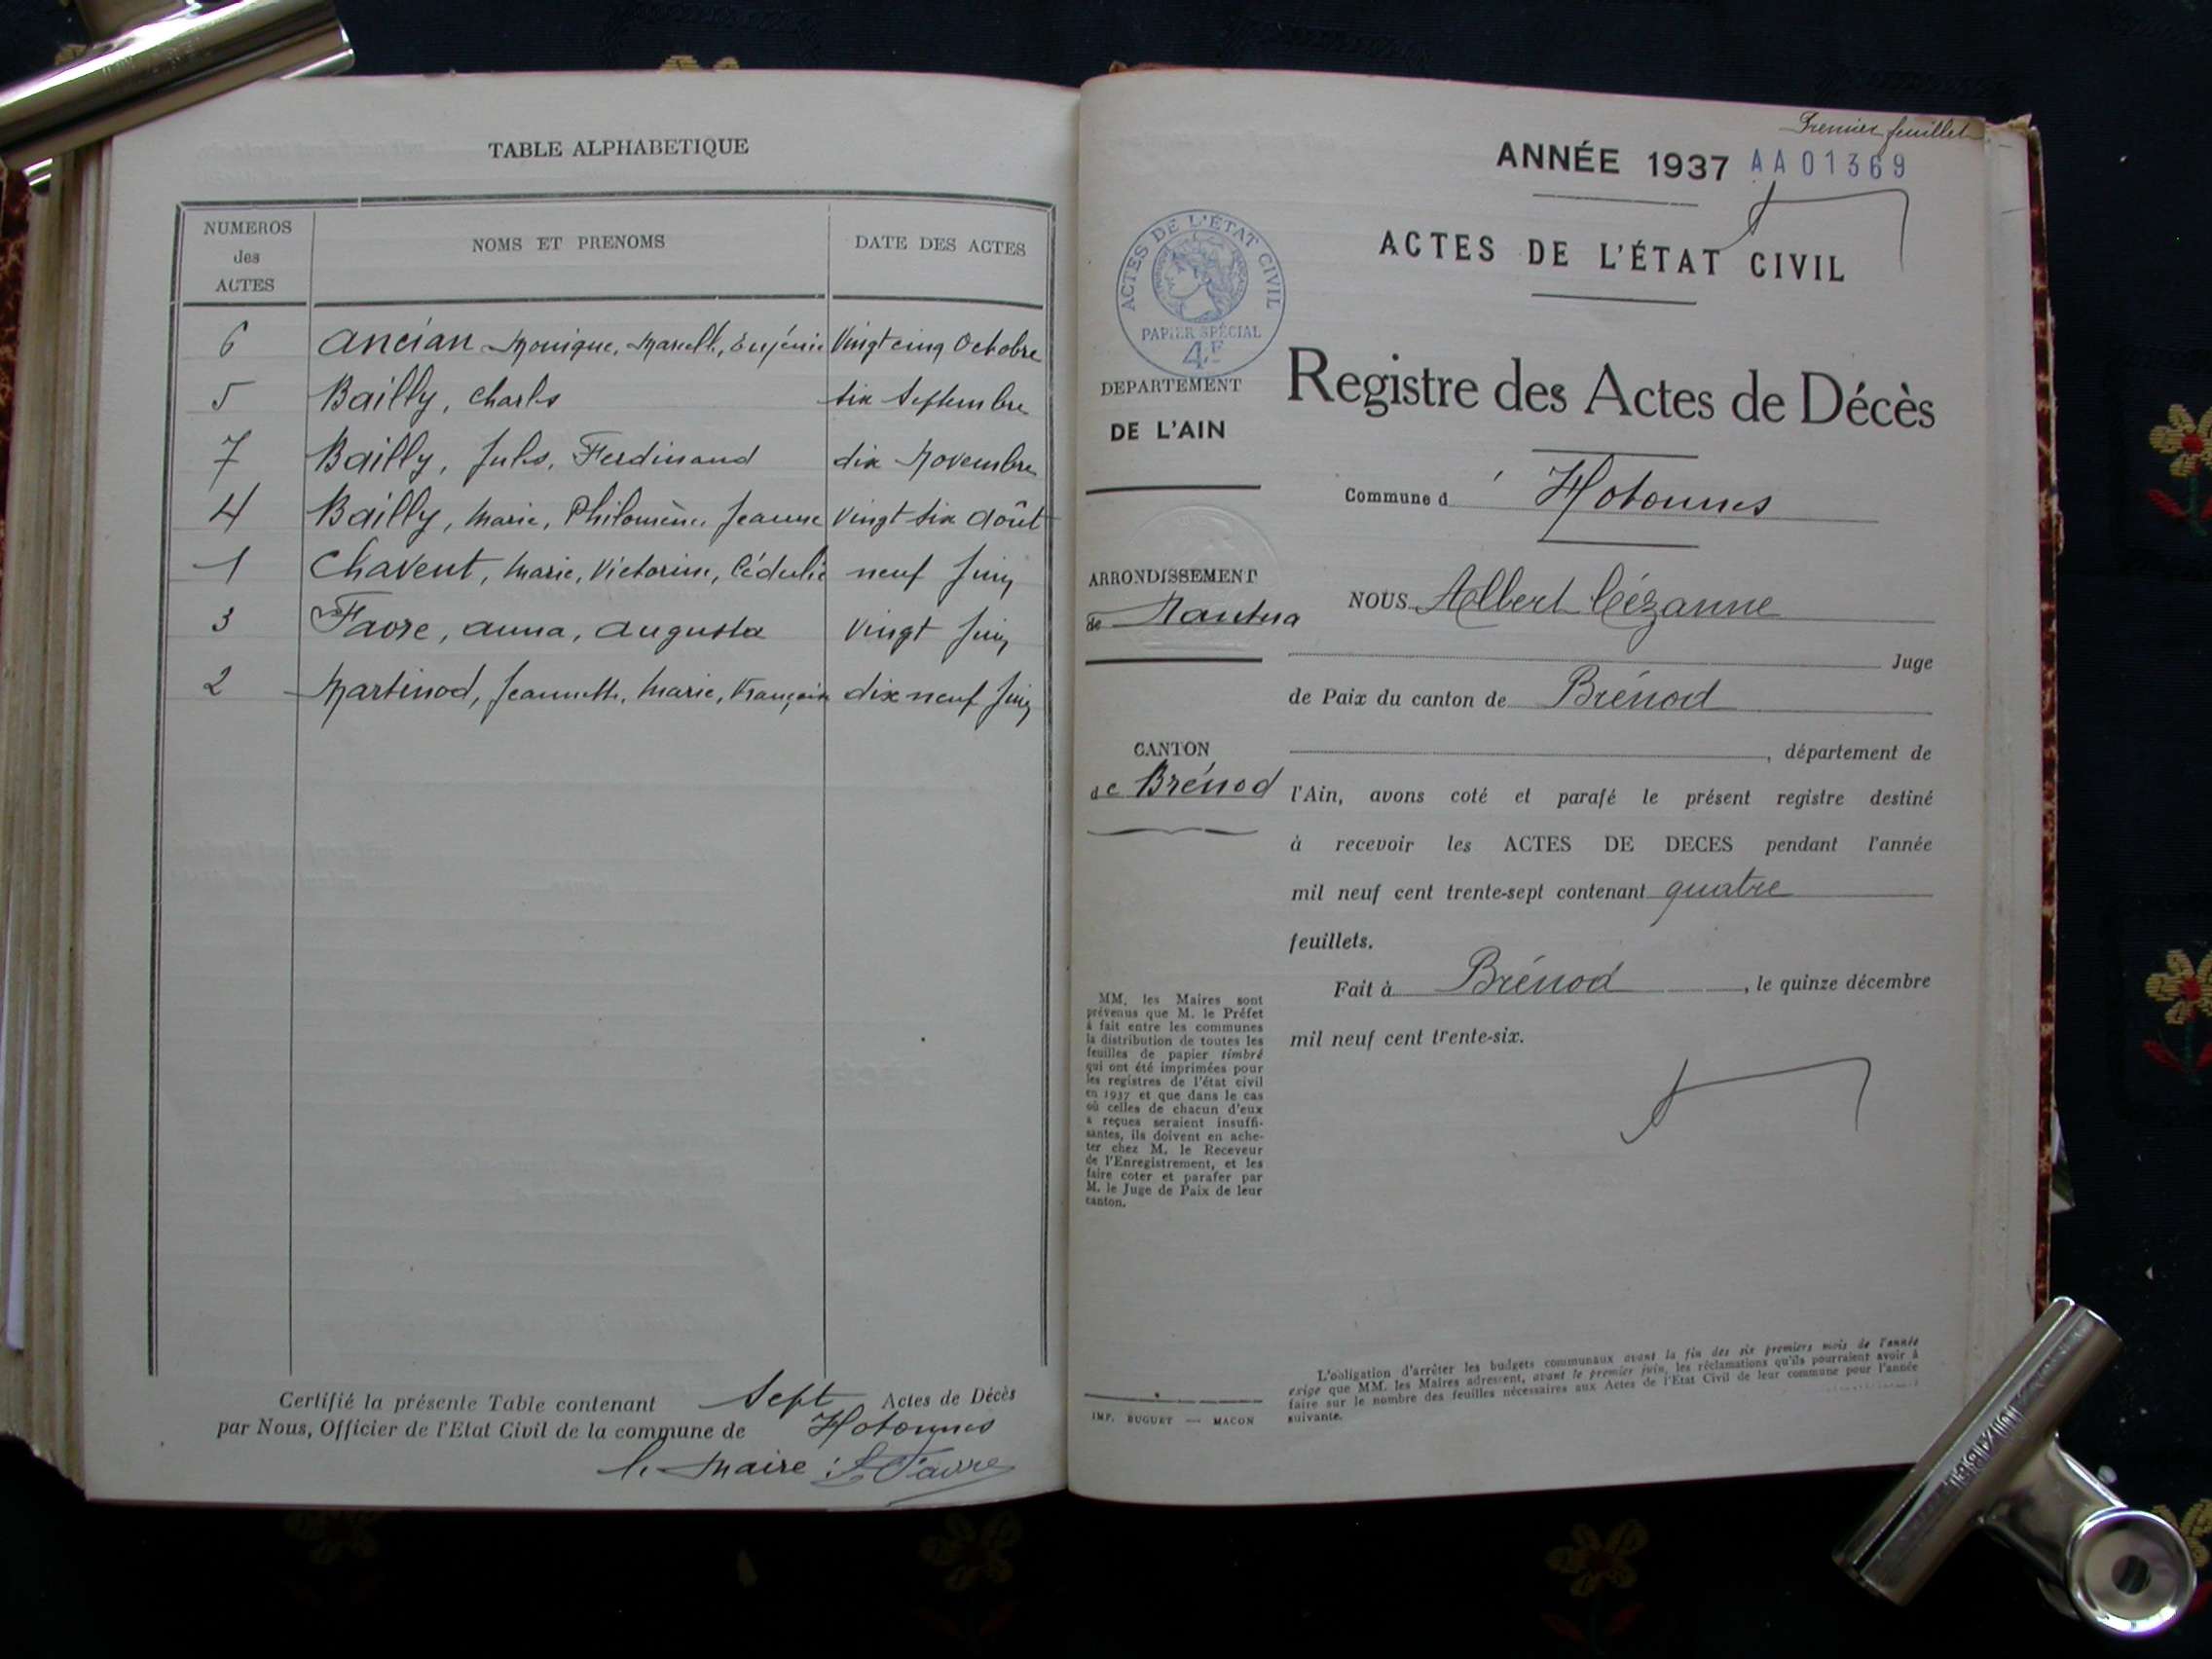 TABLE ALPHABETIQUE
NUMEROS des ACTES
NOMS ET PRENOMS
DATE DES ACTES
6 Ancian Monique, Marcelle, Eugénie Vingt cinq Octobre
5 Bailly, Charles six Septembre
7 Bailly, Jules, Ferdinand dix Novembre
4 Bailly, Marie, Philomène, Jeanne Vingt six Août
1 Chavent, Marie, Victorine, neuf Juin
3 Favre, Anna, Augusta Vingt Juin
2 Martinod, Jeannette, Marie, Françoise dix neuf Juin
Certifié la présente Table contenant Sept Actes de Décès
par Nous, Officier de l'Etat Civil de la commune de Hotonnes
le Maire : Favre
Premier feuillet
ANNÉE 1937 AA01369
ACTES DE L'ÉTAT CIVIL
ACTES DE L'ÉTAT CIVIL
PAPIER SPÉCIAL
4 F
DEPARTEMENT
DE L'AIN
Registre des Actes de Décès
Commune d' Hotonnes
ARRONDISSEMENT
de Nantua
NOUS Albert Cézanne
Juge
de Paix du canton de Brénod
CANTON
de Brénod
, département de
l'Ain, avons coté et parafé le présent registre destiné
à recevoir les ACTES DE DECES pendant l'année
mil neuf cent trente-sept contenant quatre
feuillets.
Fait à Brénod, le quinze décembre
mil neuf cent trente-six.
MM. les Maires sont
prévenus que M. le Préfet
a fait entre les communes
la distribution de toutes les
feuilles de papier timbré
qui ont été imprimées pour
les registres de l'état civil
en 1937 et que dans le cas
où celles de chacun d'eux
a reçues seraient insuffi-
santes, ils doivent en ache-
ter chez M. le Receveur
de l'Enregistrement, et les
faire coter et parafer par
M. le Juge de Paix de leur
canton.
IMP. BUGUET — MACON
L'obligation d'arrêter les budgets communaux avant la fin des six premiers mois de l'année
exige que MM. les Maires adressent, avant le premier juin, les réclamations qu'ils pourraient avoir à
faire sur le nombre des feuilles nécessaires aux Actes de l'Etat Civil de leur commune pour l'année
suivante.